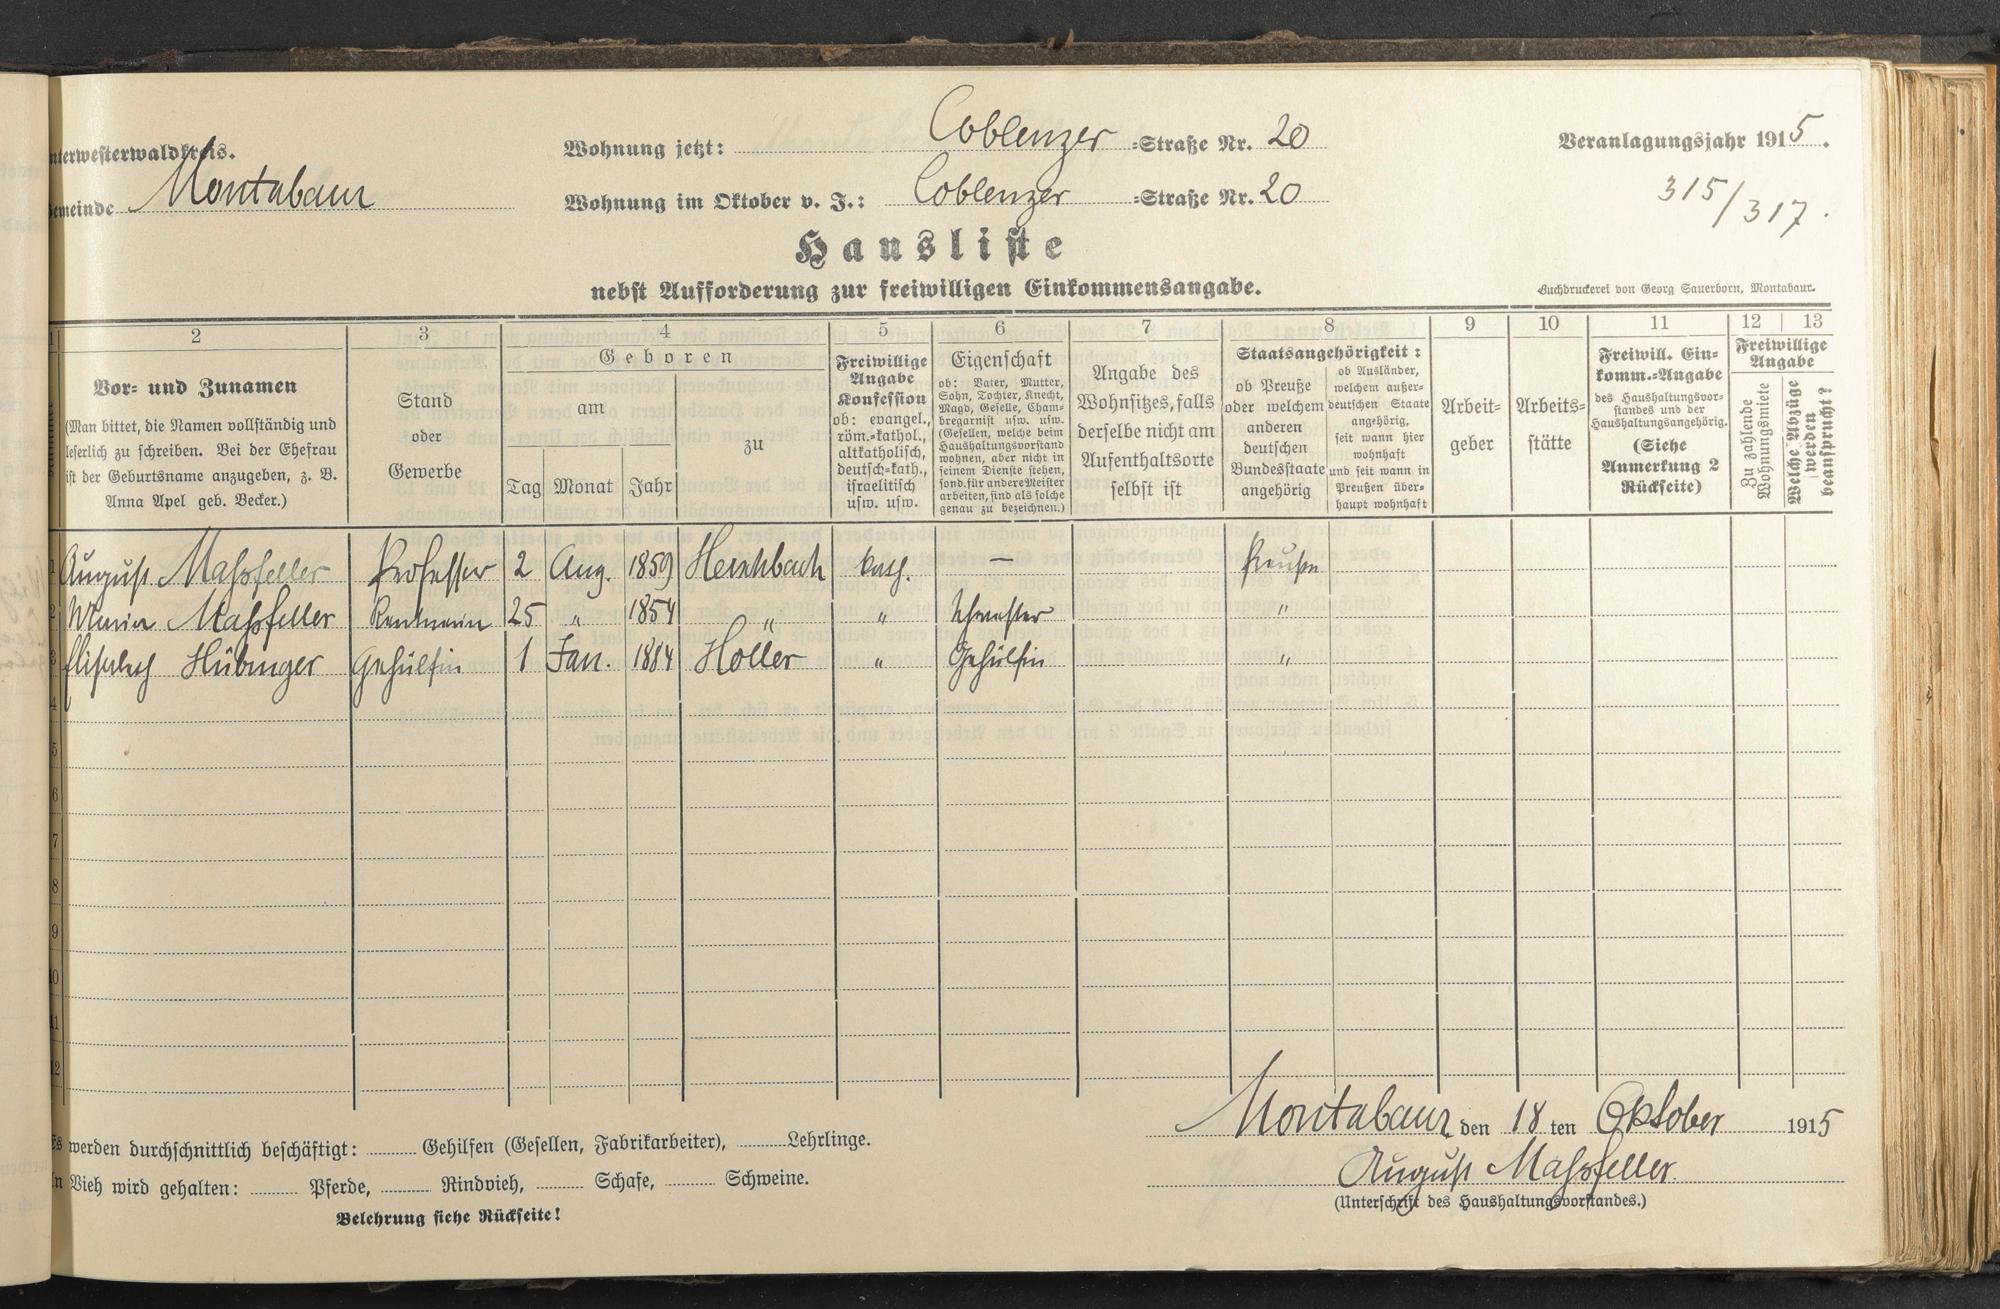 nterwesterwaldkreis.
Wohnung jetzt: Coblenzer =Straße Nr. 20
Veranlagungsjahr 1915.
emeinde Montabaur
Wohnung im Oktober v. J.: Coblenzer =Straße Nr. 20
315/317.
Hausliste
nebst Aufforderung zur freiwilligen Einkommensangabe.
Buchdruckerei von Georg Sauerborn, Montabaur.
1 2 3 4 5 6 7 8 9 10 11 12 13
Vor- und Zunamen
(Man bittet, die Namen vollständig und
leserlich zu schreiben. Bei der Ehefrau
ist der Geburtsname anzugeben, z. B.
Anna Apel geb. Becker.)
Stand
oder
Gewerbe
Geboren
am
Tag Monat Jahr
zu
Freiwillige
Angabe
Konfession
ob: evangel.,
röm.-kathol.,
altkatholisch,
deutsch-kath.,
israelitisch
usw. usw.
Eigenschaft
ob: Vater, Mutter,
Sohn, Tochter, Knecht,
Magd, Geselle, Cham-
bregarnist usw. usw.
(Gesellen, welche beim
Haushaltungsvorstand
wohnen, aber nicht in
seinem Dienste stehen,
sond. für andere Meister
arbeiten, sind als solche
genau zu bezeichnen.)
Angabe des
Wohnsitzes, falls
derselbe nicht am
Aufenthaltsorte
selbst ist
Staatsangehörigkeit:
ob Preuße
oder welchem
anderen
deutschen
Bundesstaate
angehörig
ob Ausländer,
welchem außer-
deutschen Staate
angehörig,
seit wann hier
wohnhaft
und seit wann in
Preußen über-
haupt wohnhaft
Arbeit-
geber
Arbeits-
stätte
Freiwill. Ein-
komm.-Angabe
des Haushaltungsvor-
standes und der
Haushaltungsangehörig.
(Siehe
Anmerkung 2
Rückseite)
Freiwillige
Angabe
Zu zahlende
Wohnungsmiete
Welche Abzüge
werden
beansprucht?
1 August Massfeller Professor 2 Aug. 1859 Herschbach kath. — Preußen
2 Maria Massfeller Rentnerin 25 " 1854 " " Schwester "
3 Elisabeth Hübinger Gehülfin 1 Jan. 1884 Holler " Gehülfin "
4
5
6
7
8
9
10
11
12
Montabaur den 18 ten Oktober 1915
Es werden durchschnittlich beschäftigt: Gehilfen (Gesellen, Fabrikarbeiter), Lehrlinge.
August Massfeller.
An Vieh wird gehalten: Pferde, Rindvieh, Schafe, Schweine.
(Unterschrift des Haushaltungsvorstandes.)
Belehrung siehe Rückseite!